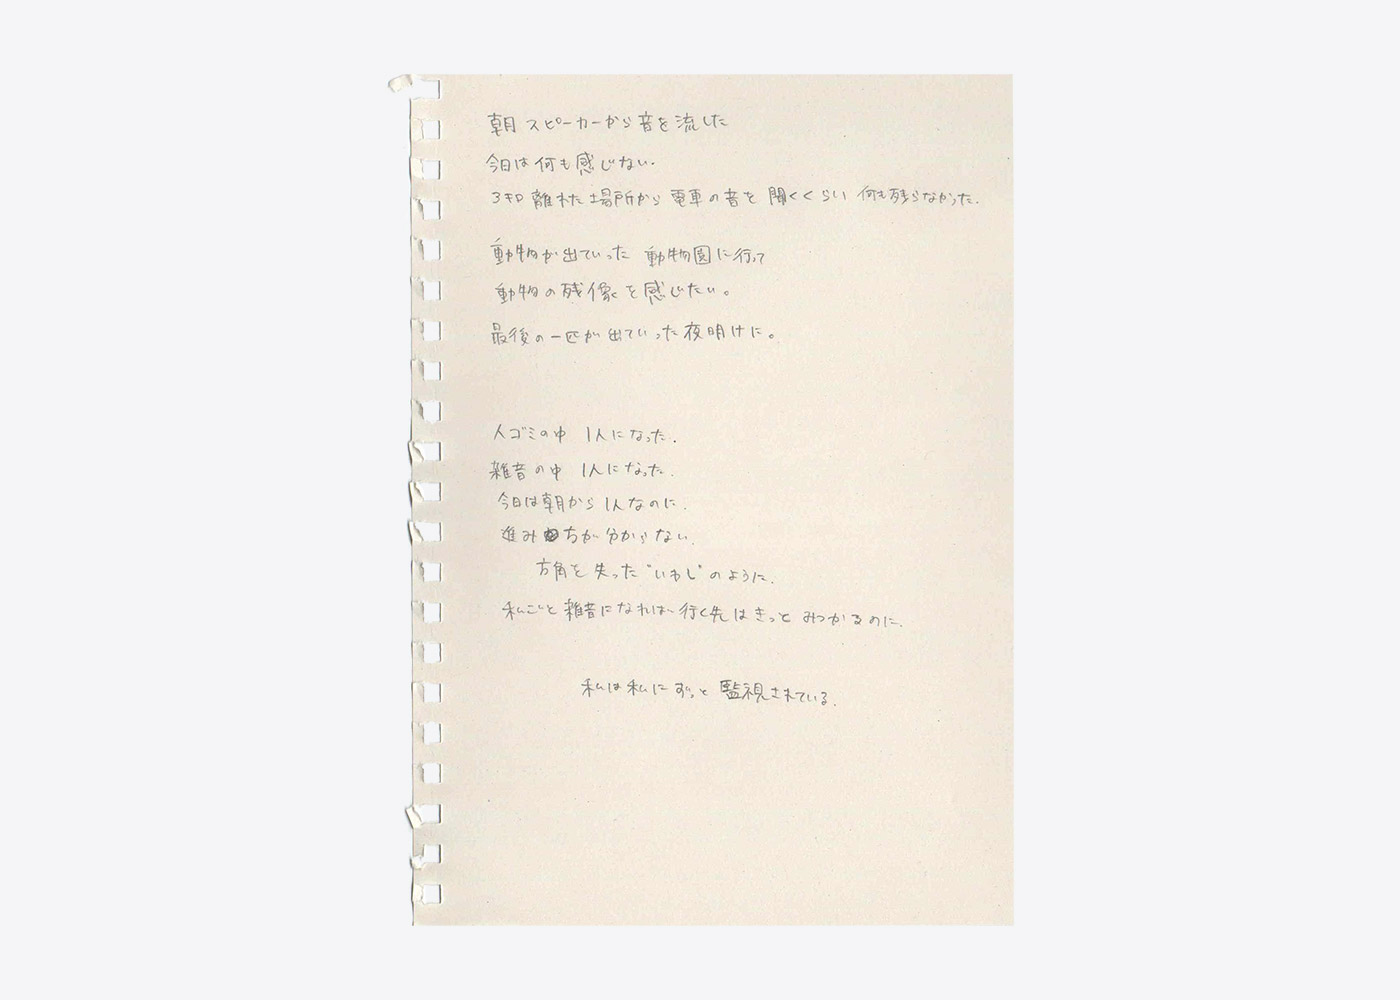 朝 スピーカーから音を流した
今日は何も感じない.
3キロ離れた場所から電車の音を聞くくらい 何も残らなかった.
動物が出ていった 動物園に行って
動物の残像を感じたい。
最後の一匹が出ていった夜明けに。
人ゴミの中 1人になった.
雑音の中 1人になった.
今日は朝から1人なのに.
進みちが分からない.
方角を失った"いわし"のように.
私ごと雑音になれば 行く先はきっと みつかるのに.
私は私にずっと監視されている.